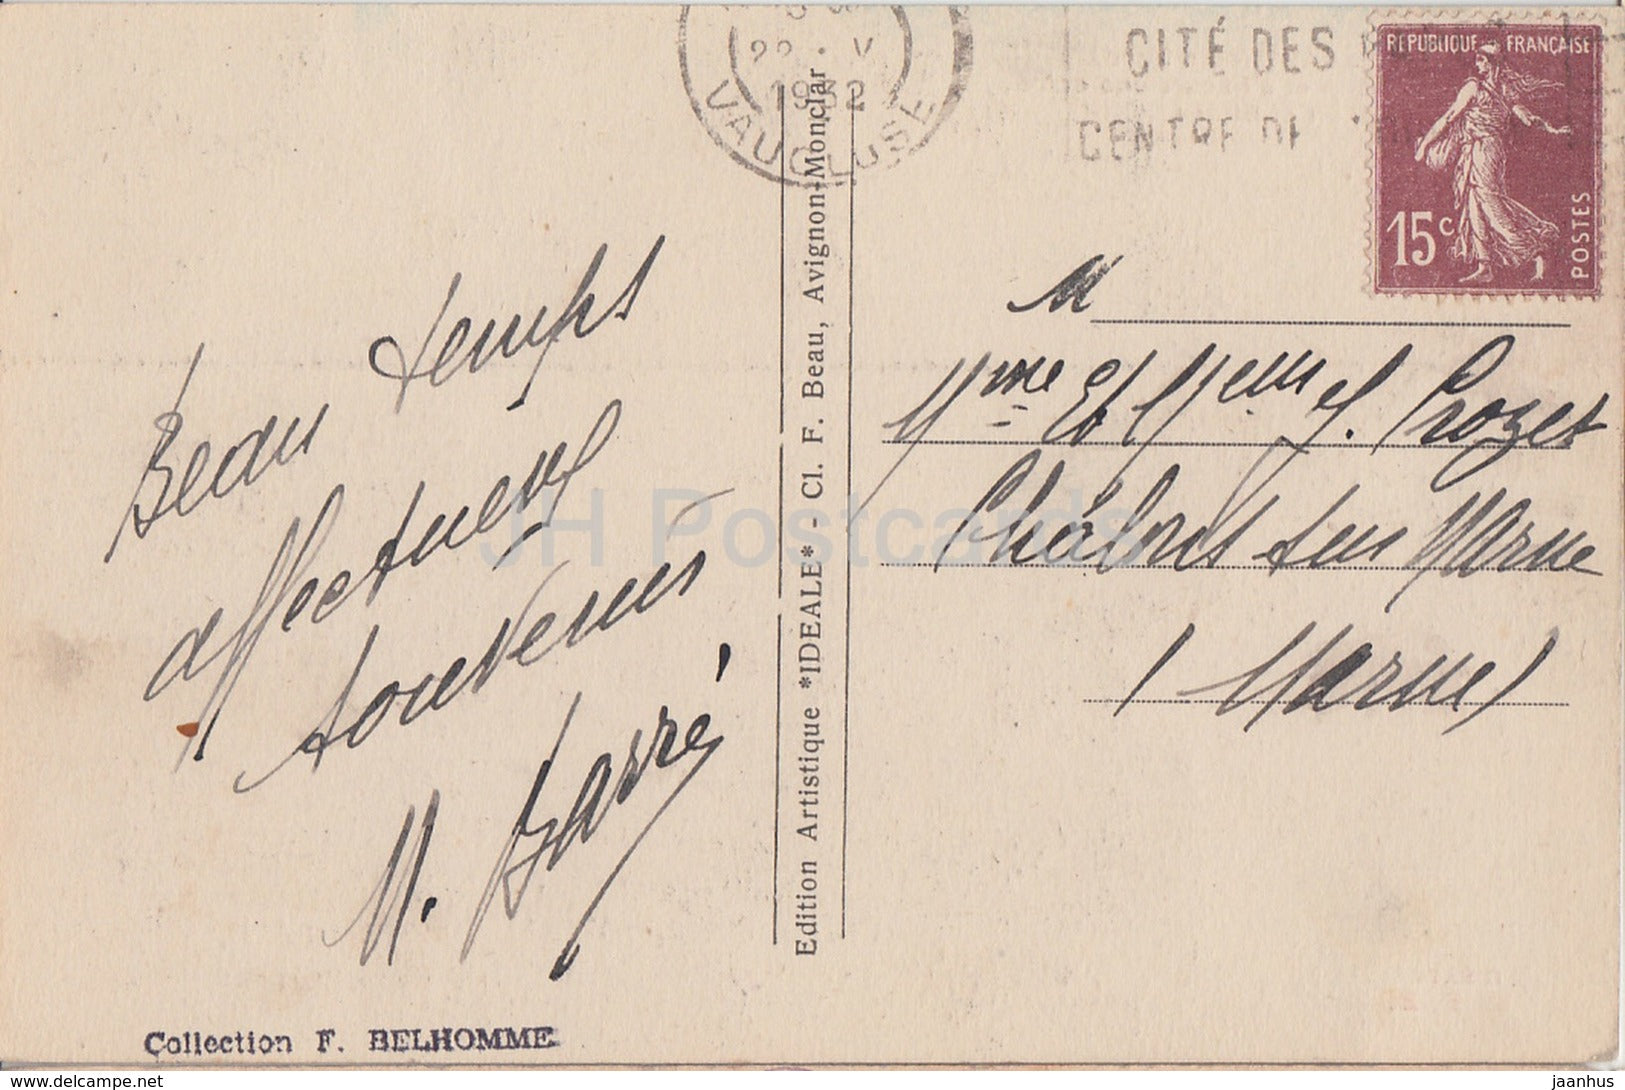 22 · V
1932
VAUCLUSE
CITÉ DES
CENTRE DE
REPUBLIQUE FRANÇAISE
15c
POSTES
Beau temps
affectueux
souvenirs
M. Barré,
Edition Artistique *IDEALE* - Cl. F. Beau, Avignon-Monclar
M
Mme Et Mr J. Crozet
Châlons sur Marne
(Marne)
Collection F. BELHOMME
JH Postcards
delcampe.net
jaanhus